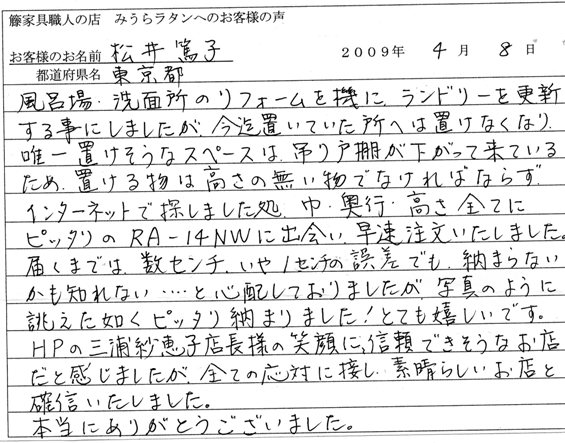 籐家具職人の店 みうらラタンへのお客様の声
お客様のお名前 松井篤子 2009年 4月 8日
都道府県名 東京都
風呂場・洗面所のリフォームを機に、ランドリーを更新
する事にしましたが、今迄置いていた所へは置けなくなり、
唯一置けそうなスペースは、吊り戸棚が下がって来ている
ため、置ける物は高さの無い物でなければならず、
インターネットで探しました処、巾・奥行・高さ全てに
ピッタリのRA-14NWに出会い、早速注文いたしました。
届くまでは、数センチ、いや1センチの誤差でも、納まらない
かも知れない……と心配しておりましたが、写真のように
誂えた如くピッタリ納まりました!とても嬉しいです。
HPの三浦紗恵子店長様の笑顔に、信頼できそうなお店
だと感じましたが、全ての応対に接し、素晴らしいお店と
確信いたしました。
本当にありがとうございました。